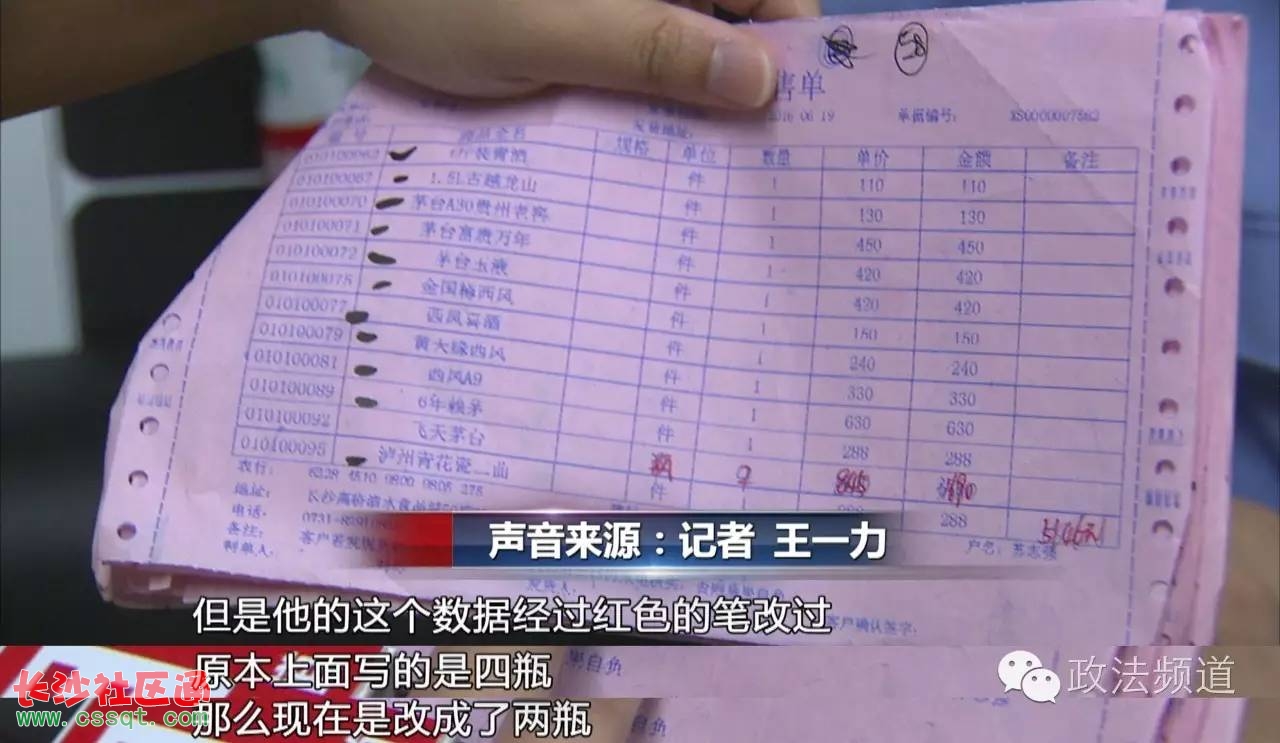 58
售单
2016 06 19 单据编号: XS0000007562
商品全名 规格 单位 数量 单价 金额 备注
010100062 装青酒 件 1 110 110
010100067 1.5L古越龙山 件 1 130 130
010100070 茅台A30贵州老窖 件 1 450 450
010100071 茅台富贵万年 件 1 420 420
010100072 茅台玉液 件 1 420 420
010100075 金国梅西风 件 1 150 150
010100077 西凤喜酒 件 1 240 240
010100079 黄大绿西风 件 1 330 330
010100081 西凤A9 件 1 630 630
010100089 6年赖茅 件 1 288 288
010100092 飞天茅台 瓶 2 845
010100095 泸州青花瓷二曲 件 288
农行: 6228 4510 9800 9805 275
地址: 长沙高桥酒水食品城
电话: 0731-
备注:
制单人:
户名: 苏志强
客户确认签字:
声音来源:记者 王一力
但是他的这个数据经过红色的笔改过
原本上面写的是四瓶
那么现在是改成了两瓶
政法频道
长沙社区通
www.cssqt.com